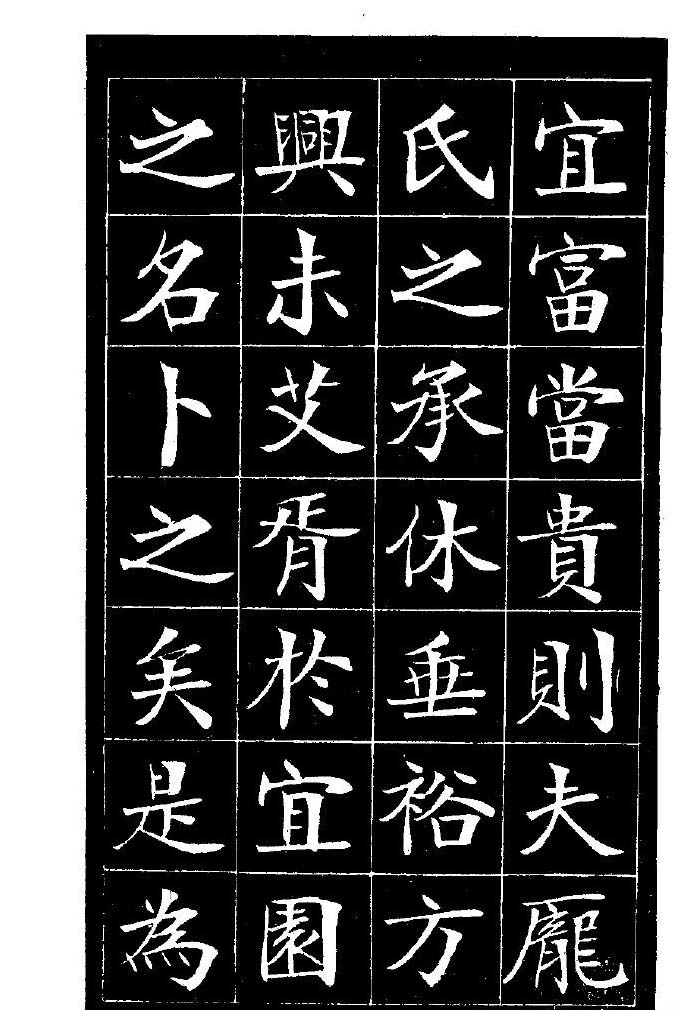 宜富當貴則夫龐
氏之承休垂裕方
興未艾胥於宜園
之名卜之矣是為